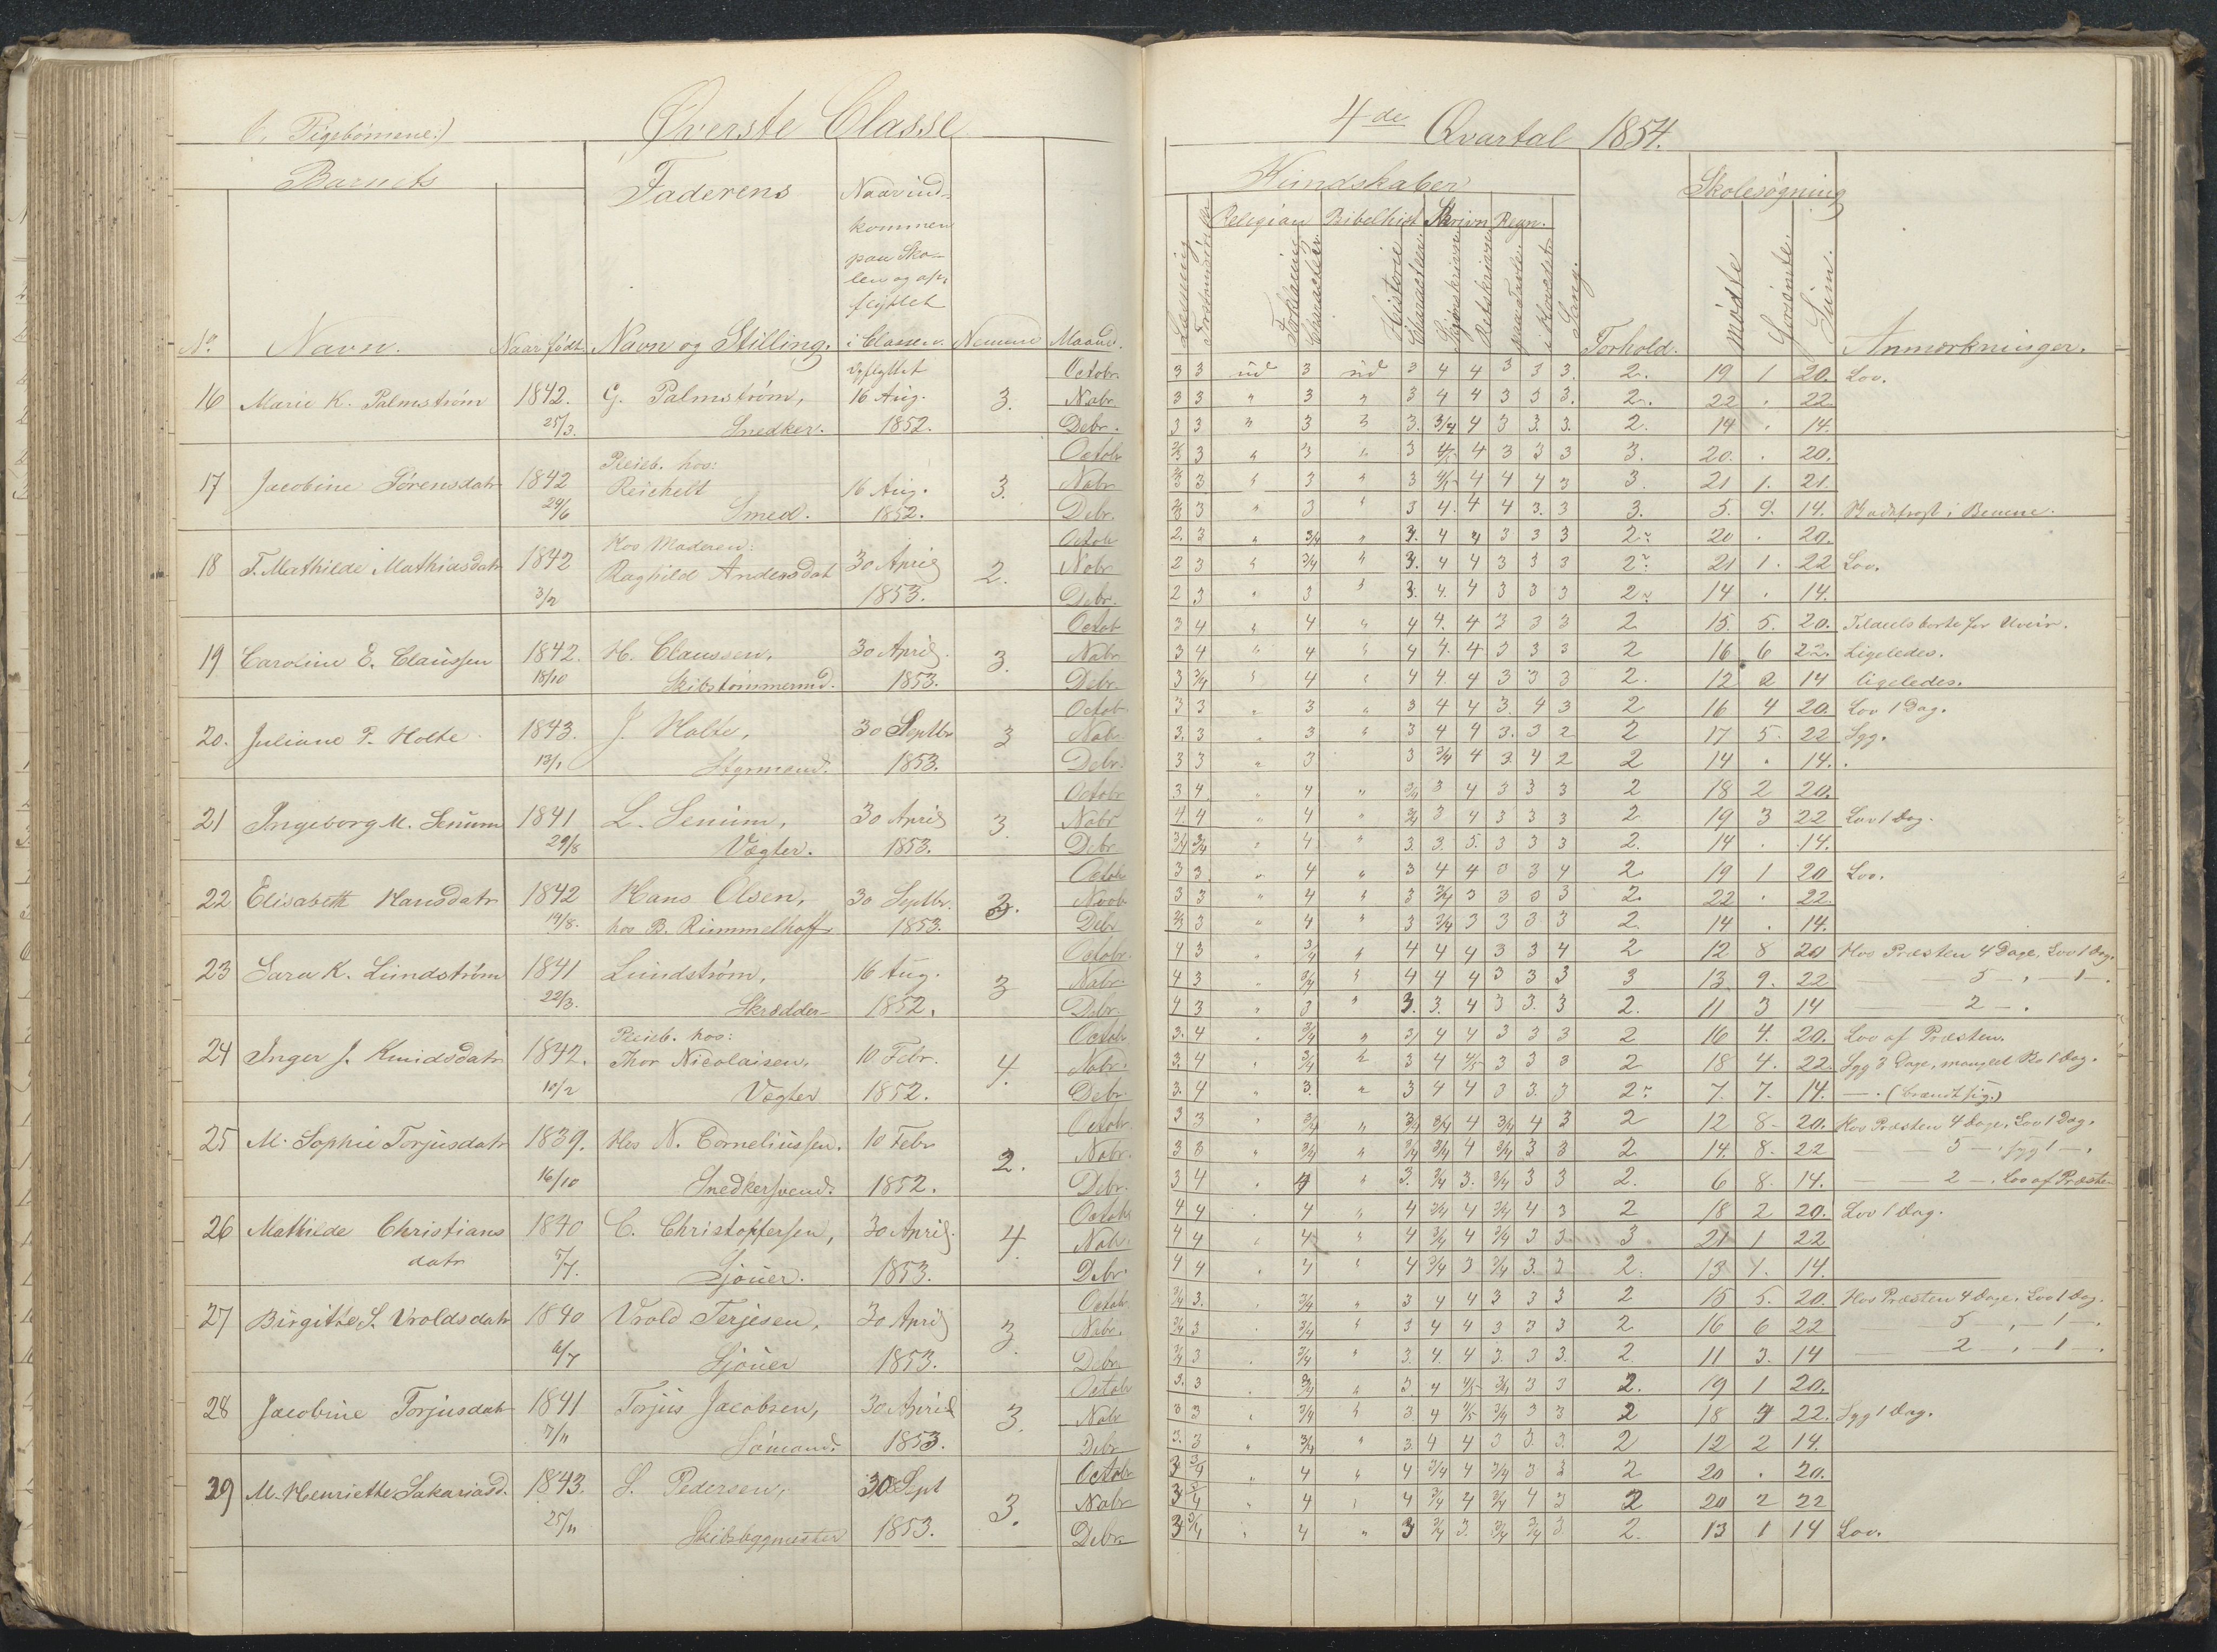 Pigebörnene)
Øverste Classe
Barnets
Faderens
Naar ind-
kommen
paa Sko-
len og op-
flyttet
No. Navn. Naar født. Navn og Stilling. i Classen. Nemme Maaned.
Opflyttet Octobr.
16 Marie K. Palmstrøm 1842. G. Palmstrøm, 16 Aug. 3. Nobr
25/3. Snedker. 1852. Debr.
Octobr
Pleieb. hos:
17 Jacobine Sørensdatr 1842 Reichelt 16 Aug. 3. Nobr
29/6 Smed. 1852. Debr.
Hos Moderen: Octobr
18 T. Mathilde Mathiasdatr 1842 Raghild Andersdat 30 April 2. Nobr
3/2 1853. Debr.
Octobr
19 Caroline E. Claussen 1842. H. Claussen, 30 April. 3. Nobr
18/10 Skibstømmermd. 1853. Debr.
Octobr
20. Juliane P. Holte 1843. J. Holte, 30 Septbr 3 Nobr
13/1 Styrmand. 1853. Debr.
Octobr
21 Ingeborg M. Senum 1841 L. Senum, 30 April 3. Nobr
29/8 Vægter. 1853. Debr
Octobr
22 Elisabeth Hansdatr 1842 Hans Olsen, 30 Septbr. 3. Noob
19/8. hos B. Rummelhoff 1853. Debr
Octobr.
23 Sara K. Lundstrøm 1841 Lundstrøm, 16 Aug. 3 Nobr.
22/3. Skrædder 1852. Debr
Pleieb. hos: Octobr
24 Inger J. Knudsdatr 1842. Thor Nicolaisen, 10 Febr. 4. Nobr.
10/2 Vægter 1852. Debr
Octobr.
25 M. Sophie Torjusdatr 1839. Hos N. Corneliussen. 10 Febr 2. Nobr.
16/10 Snedkersvend. 1852. Debr.
Octobr
26 Mathilde Christians 1840 C. Christoffersen, 30 April. 4. Nobr.
datr 5/7. Sjouer. 1853. Debr
Octobr.
27 Birgitte S. Vroldsdatr 1840 Vrold Terjesen, 30 April 3. Nobr.
6/7 Sjouer 1853. Debr
Octobr
28 Jacobine Torjusdatr 1841 Torjus Jacobsen, 30 April 3. Nobr
7/11 Sømand. 1853. Debr
29 M. Henriette Sakariasd. 1843. S. Pedersen, 30 Sept 3. Octobr
25/11 Skibsbygmester 1853. Nobr
Debr.
4de Qvartal 1854.
Kundskaber
Skolesøgning
Religion Bibelhist Skrivn Regn.
Læsning
Forklaring
Character
Historie
Character
Retskrivn.
paa Tavle.
i Hovedet.
Sang.
Forhold.
Mødte
Forsømte.
Sum.
Anmærkninger.
3 3 ud 3 ud 3 4 4 3 3 3. 2. 19 1 20. Lov.
3 3 " 3 " 3 4 4 3 3 3. 2. 22 . 22
3 3 " 3 3. 3/4 4 3 3. 3. 2. 14 . 14.
3 " 3 " 3 4 3 3 3 3. 20. . 20.
3 " 3 " 3 4 4 4 3 3. 21 1. 21.
3 " 3 " 3 4. 4 4 3. 3 3. 5. 9. 14.
2. 3 " 3/4 " 3. 4 4 3 3 3 2. 20 . 20.
2 3 " 3/4 " 3. 4 4 3 3 3 2. 21 1. 22 Lov.
2 3 " 3 " 3. 4. 4 3 3 3 2 14 . 14.
3 4 " 4 " 4 4. 4 3 3 3 2 15. 5. 20. Tildeels borte for Uveir.
3 4 " 4 " 4 4. 4 3 3 3 2 16 6 22. Ligeledes.
3 3/4 " 4 " 4 4. 4 3 3 3 2. 12 2 14 ligeledes.
3 3 " 3 " 3 4 4 3. 4 3 2 16 4 20. Lov 1 Dag.
3. 3 " 3 " 3 4 4 3. 3 2 2 17 5. 22 Syg.
3 3 " 3 3 3/4 4 3. 4 2 2 14 " 14.
3 4 " 4 " 3/4 3 4 3 3 3 2 18 2 20.
4. 4 " 4 " 3/4 3 4 3 3 3 2 19 3 22 Lov 1 Dag.
3/4 3/4 " 4 " 3. 3. 5. 3 3 3 2. 14 . 14.
3 3 " 4 " 3 4 4 3 3 4 2 19 1 20 Lov.
3 3 " 4 " 3 3/4 3 3 3 3 2. 22 . 22.
3 " 4 " 3 3/4 3 3 3 3 2. 14 . 14.
4 3 " 3/4 " 4 4 4 3 3 4 2 12 8 20 Hos Præsten 4 Dage, Lov 1 Dag.
4 3 " 3/4 " 4 4 4 3 3 3 3 13. 9. 22 — 5 — , — 1 — .
4 3 " 3 " 3. 3. 4 3 3. 3 2. 11 3 14 — 2 — .
3. 4 " 3/4 " 3 4 4 3 3 3 2 16 4. 20. Lov af Præsten.
3. 4 " 3/4 " 3 4 4/5 3 3 3 2 18 4. 22. Syg 3 Dage, manglet Bo 1 Dag.
3. 4 " 3. " 3 4 4 3 3. 3 2. 7. 7. 14. — . (brændt sig.)
3 3 " 3/4 " 3/4 3/4 4 3/4 4 3 2 12 8 20. Hos Præsten 4 Dage, Lov 1 Dag.
3 3 " 3/4 " 3/4 3/4 4 3/4 3 3 2 14. 8. 22 — 5 — , syg 1 — .
3 4 " 4 " 3. 3/4 3. 3/4 3 3 2. 6 8. 14. — 2 — . Lov af Præste
4 4 " 4 " 4 3/4 4 3/4 4 3 2 18 2 20. Lov 1 Dag.
4 4 " 4 " 4 3/4 4 3/4 3 3 3. 21 1 22
4 4 " 4 " 4 3/4 3 3/4 3. 3 2. 13 1. 14.
3/4 3. " 3/4 " 3 4 4 3 3 3 2 15 5. 20. Hos Præsten 4 Dage. Lov 1 Dag.
3/4 3 " 3/4 " 3 4 4 3 3 3 2 16 6 22 — 5 — , — 1 — .
3/4 3 " 3/4 " 3. 4. 4 3. 3 3. 2. 11 3. 14 — 2 — , — 1 — .
3. 3 " 3/4 " 3. 4 4/5 3/4 3 3 2. 19 1 20.
3 3 " 3/4 " 3. 4 4/5 3/4 3 3 2 18 4 22. Syg 1 Dag.
3. 3 " 3/4 " 3. 4 4 3 3. 3. 2 12 2 14.
3 3/4 " 4 " 4 3/4 4 3/4 3 3 2 20 . 20.
3 3/4 " 4 " 4 3/4 4 3/4 4 3 2 20 2 22
3 3/4 " 4 " 3 3/4 3. 3/4 3/4 3. 2. 13 1 14 Lov.